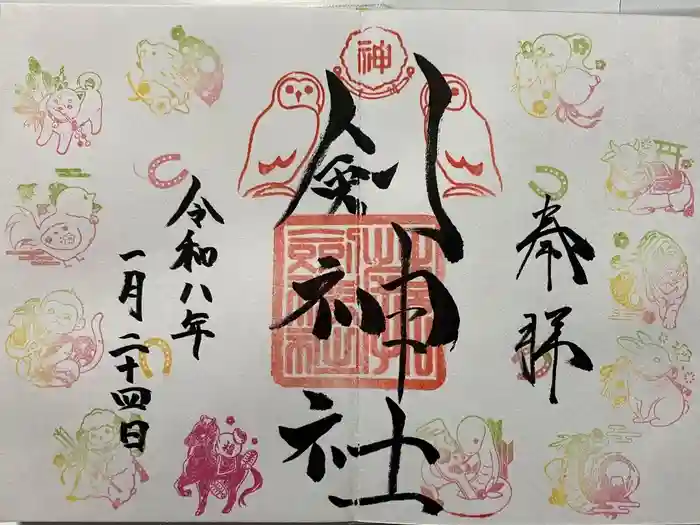 奉拝
神
剣神社
令和八年
一月二十四日